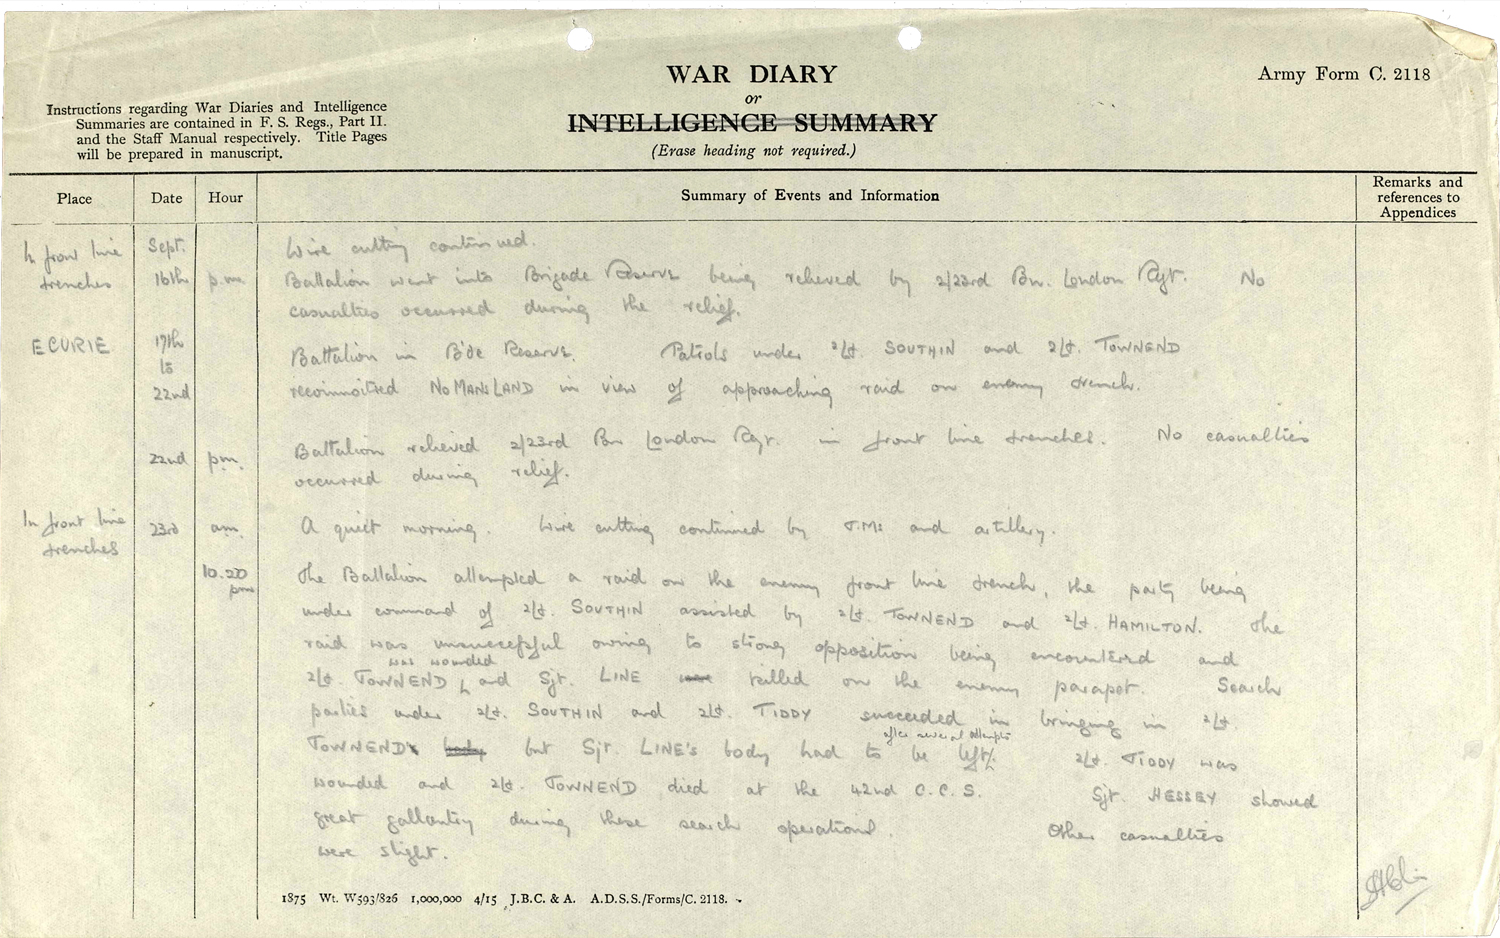 WAR DIARY
or
INTELLIGENCE SUMMARY
(Erase heading not required.)
Army Form C. 2118
Instructions regarding War Diaries and Intelligence
Summaries are contained in F. S. Regs., Part II.
and the Staff Manual respectively. Title Pages
will be prepared in manuscript.
Place
Date
Hour
Summary of Events and Information
Remarks and
references to
Appendices
In front line Sept. Wire cutting continued.
trenches 16th p.m. Battalion went into Brigade Reserve being relieved by 2/23rd Bn. London Rgt. No
casualties occurred during the relief.
ECURIE 17th
to
22nd
Battalion in B'de Reserve. Patrols under 2/Lt. SOUTHIN and 2/Lt. TOWNEND
reconnoitred NO MANS LAND in view of approaching raid on enemy trench.
22nd p.m. Battalion relieved 2/23rd Bn London Rgt. in front line trenches. No casualties
occurred during relief.
In front line
trenches
23rd am. A quiet morning. Wire cutting continued by T.Ms and artillery.
10.20
pm
The Battalion attempted a raid on the enemy front line trench, the party being
under command of 2/Lt. SOUTHIN assisted by 2/Lt. TOWNEND and 2/Lt. HAMILTON. The
raid was unsuccessful owing to strong opposition being encountered and
was wounded
2/Lt. TOWNEND and Sjt. LINE were killed on the enemy parapet. Search
parties under 2/Lt. SOUTHIN and 2/Lt. TIDDY succeeded in bringing in 2/Lt.
after several attempts
TOWNEND body but Sjt. LINE'S body had to be left. 2/Lt. TIDDY was
wounded and 2/Lt. TOWNEND died at the 42nd C.C.S. Sjt. HESSEY showed
great gallantry during these search operations. Other casualties
were slight.
1875 Wt. W593/826 1,000,000 4/15 J.B.C. & A. A.D.S.S./Forms/C. 2118.